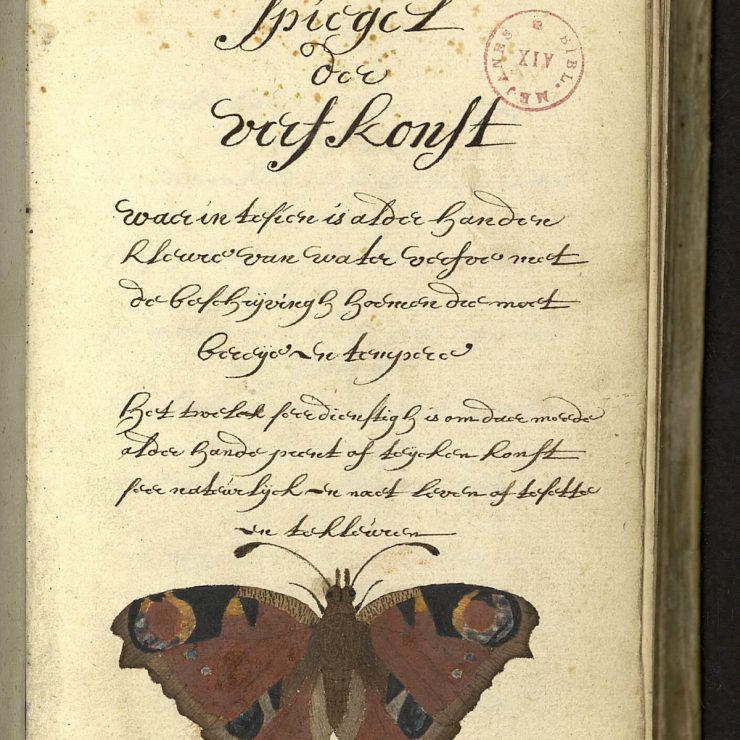 Spiegel
der
verfkonst
BIBL. MEJANES
AIX
waer in tesien is alder handen
kleure van water verfve met
de beschrijvingh hoemen die moet
bereije en tempere
Het twelck seer dienstigh is om daer meede
alder hande prent of teijcken konst
seer natúrlijck en naet leven af tesette
en tekleúren